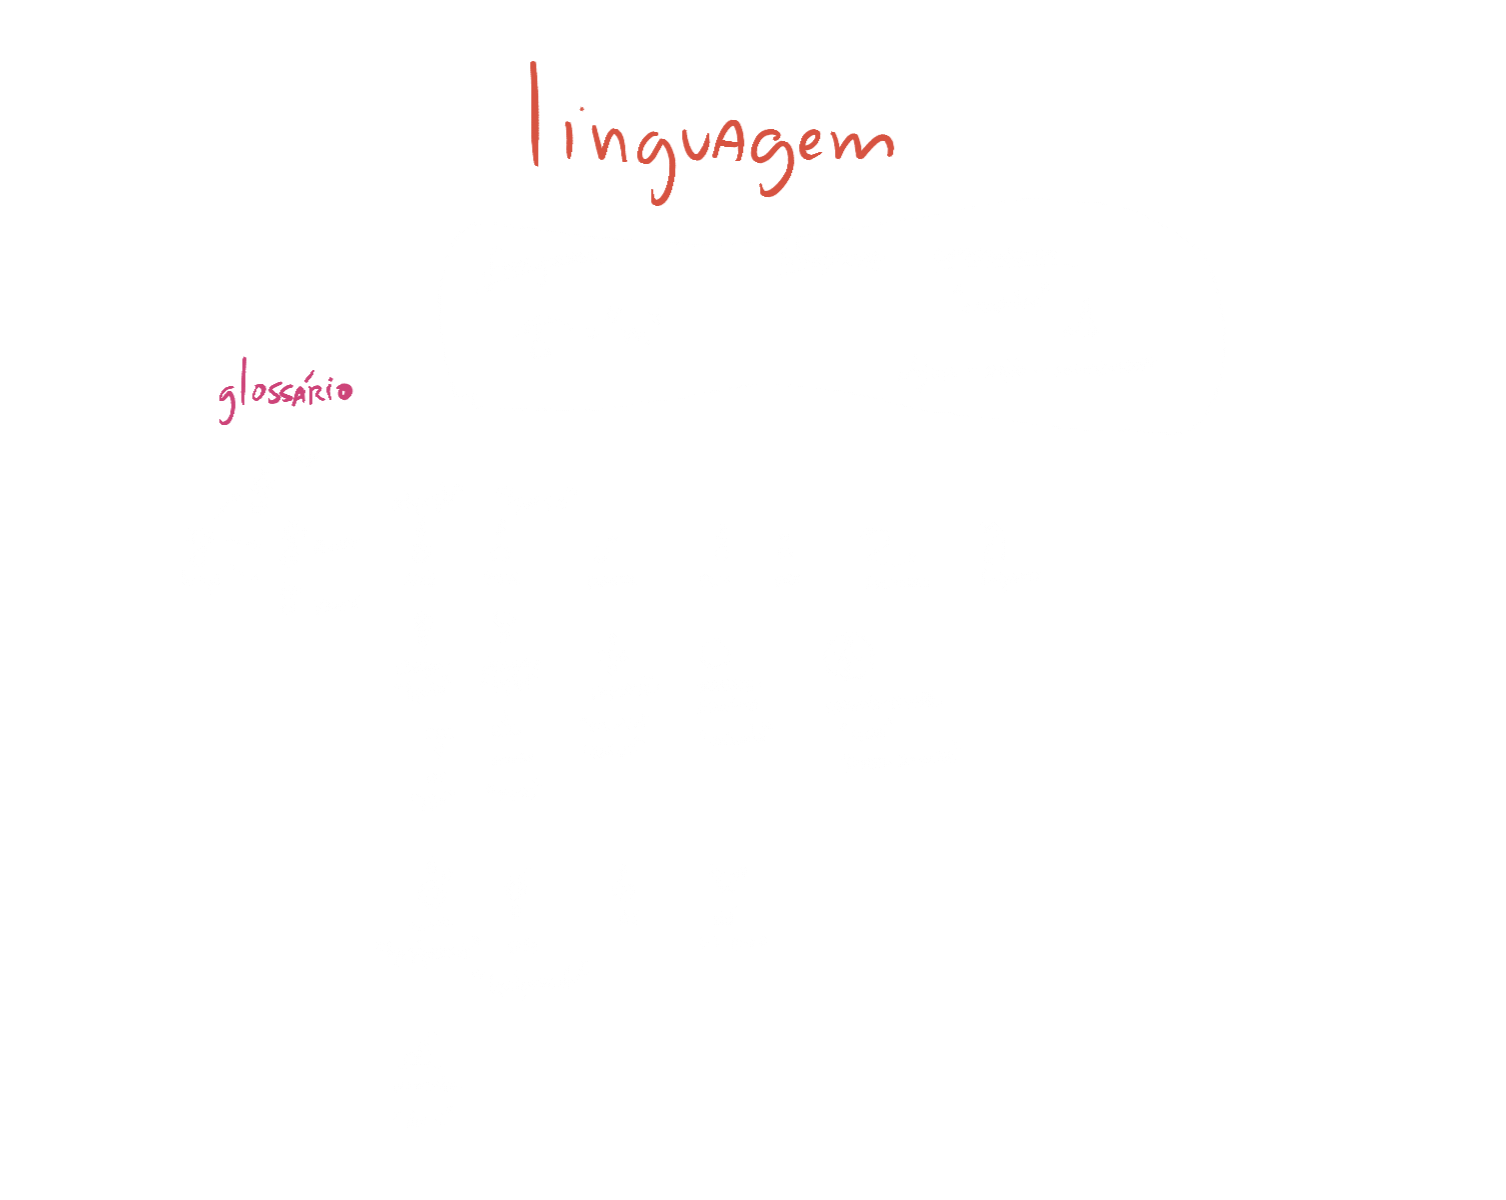 linguagem
glossário